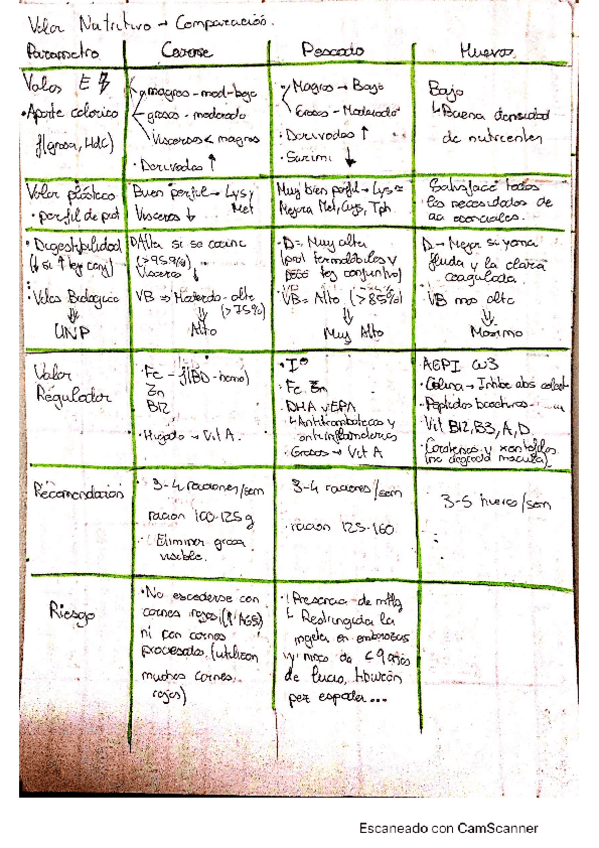 Valor Nutritivo → Comparación.
Parametro Carne Pescado Huevos
Valor E
• Aporte calorico
f(grasa, Hdc)
magros - mod-bajo
grasos - moderado
Visceras < magros
• Derivados ↑
• Magros → Bajo
Grasos - Moderado
• Derivados ↑
• Surimi ↓
Bajo
↳ Buena densidad
de nutrientes
Valor plástico
• perfil de prot
Buen perfil → Lys y
Visceras ↓ Met
Muy bien perfil → Lys ≈
Mejora Met, Cys, Tph.
Satisface todas
las necesidades de
aa esenciales.
• Digestibilidad
(↓ si ↑ tej conj)
• Valor Biologico
⇓
UNP
D Alta si se cocina
(>95%)
Visceras ↓
VB ⇒ Moderado - alto
(>75%)
⇓
Alto
• D = Muy alta
(prot termolábiles y
tej conjuntivo)
• VB = Alto (>85%)
⇓
Muy Alto
D → Mejor si yema
fluida y la clara
coagulada
• VB mas alto
⇓
Máximo
Valor
Regulador
• Fe - f(BD - hemo)
Zn
B12
• Higado → Vit A.
• I
• Fe Zn
• DHA y EPA
↳ Antitromboticos y
antiinflamatorios
• Grasos → Vit A
AGPI ω3
• Colina → Inhibe abs colest
• Peptidos bioactivos
• Vit B12, B3, A, D.
• Carotenos y xantofilas
(no degrada macula).
Recomendacion
• 3-4 raciones/sem
racion 100-125 g
• Eliminar grasa
visible.
• 3-4 raciones/sem
• racion 125-160
3-5 huevos/sem
Riesgo
• No excederse con
carnes rojas, (↑ AGS)
ni con carnes
procesadas. (utilizan
muchas carnes
rojas)
• Presencia de mHg
↳ Restringida la
ingesta en embarazos
y niños de < 9 años
de lucio, tiburón
pez espada...
Escaneado con CamScanner